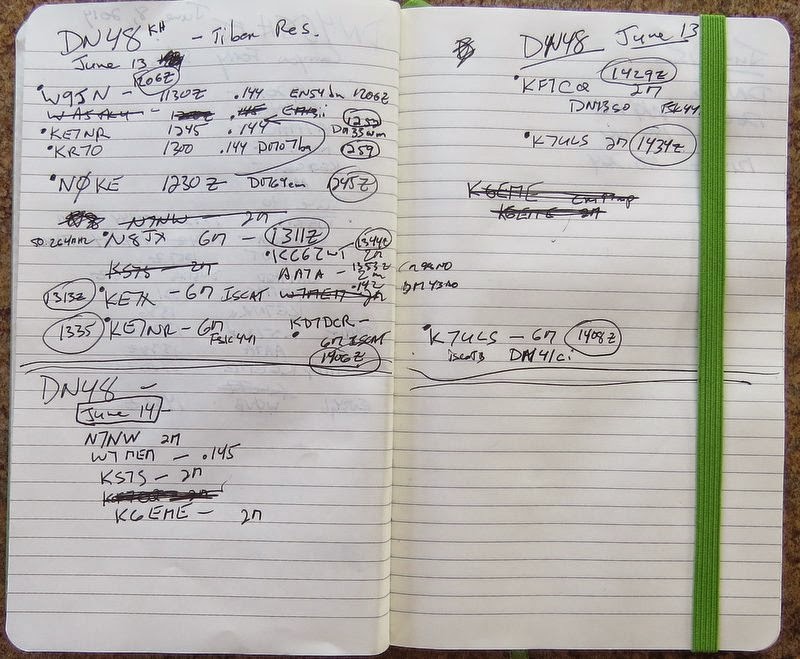 DN48 KH - Tiber Res.
June 13
1206Z
W9JN - 1130Z .144 EN54 1206Z
WA5AKU - .145
1252
KE7NR 1245 .144 DM33wm
KR7O 1300 .144 DM07ba 1259
NØKE 1230Z DM64em 1245Z
N7NW - 2M
50.264MHZ N8JX 6M - 1311Z
1344Z
KC6ZWT 2M
KS7S - 2M
AA7A - 1353Z 2M CM98NO
.142 DM43AO
1313Z KE7X - 6M ISCAT W7MEM 2M
1335 KE7NR - 6M FSK441
KD7DCR -
6M ISCAT
1406Z
DN48 -
June 14 -
N7NW 2M
W7MEM - .145
KS7S - 2M
KG6EME - 2M
DN48 June 13
KF7CQ 1429Z
2M
DN13SO FSK441
K7ULS 2M 1434Z
K6EME
K6EME 2M
K7ULS - 6M 1408Z
DN41ci